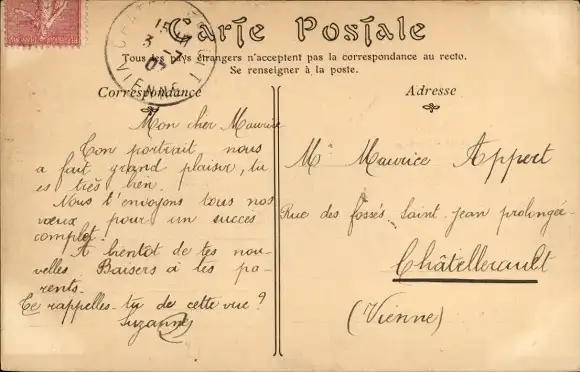 Carte Postale
Tous les pays étrangers n'acceptent pas la correspondance au recto.
Se renseigner à la poste.
Correspondance
Mon cher Maurice
Ton portrait nous
a fait grand plaisir, tu
es très bien.
Nous t'envoyons tous nos
vœux pour un succès
complet.
A bientôt de tes nou-
velles Baisers à tes pa-
rents.
Te rappelles-tu de cette vue?
Suzanne
Adresse
Mr Maurice Appert
Rue des fossés Saint-Jean prolongée
Châtellerault
(Vienne)
VIENNE